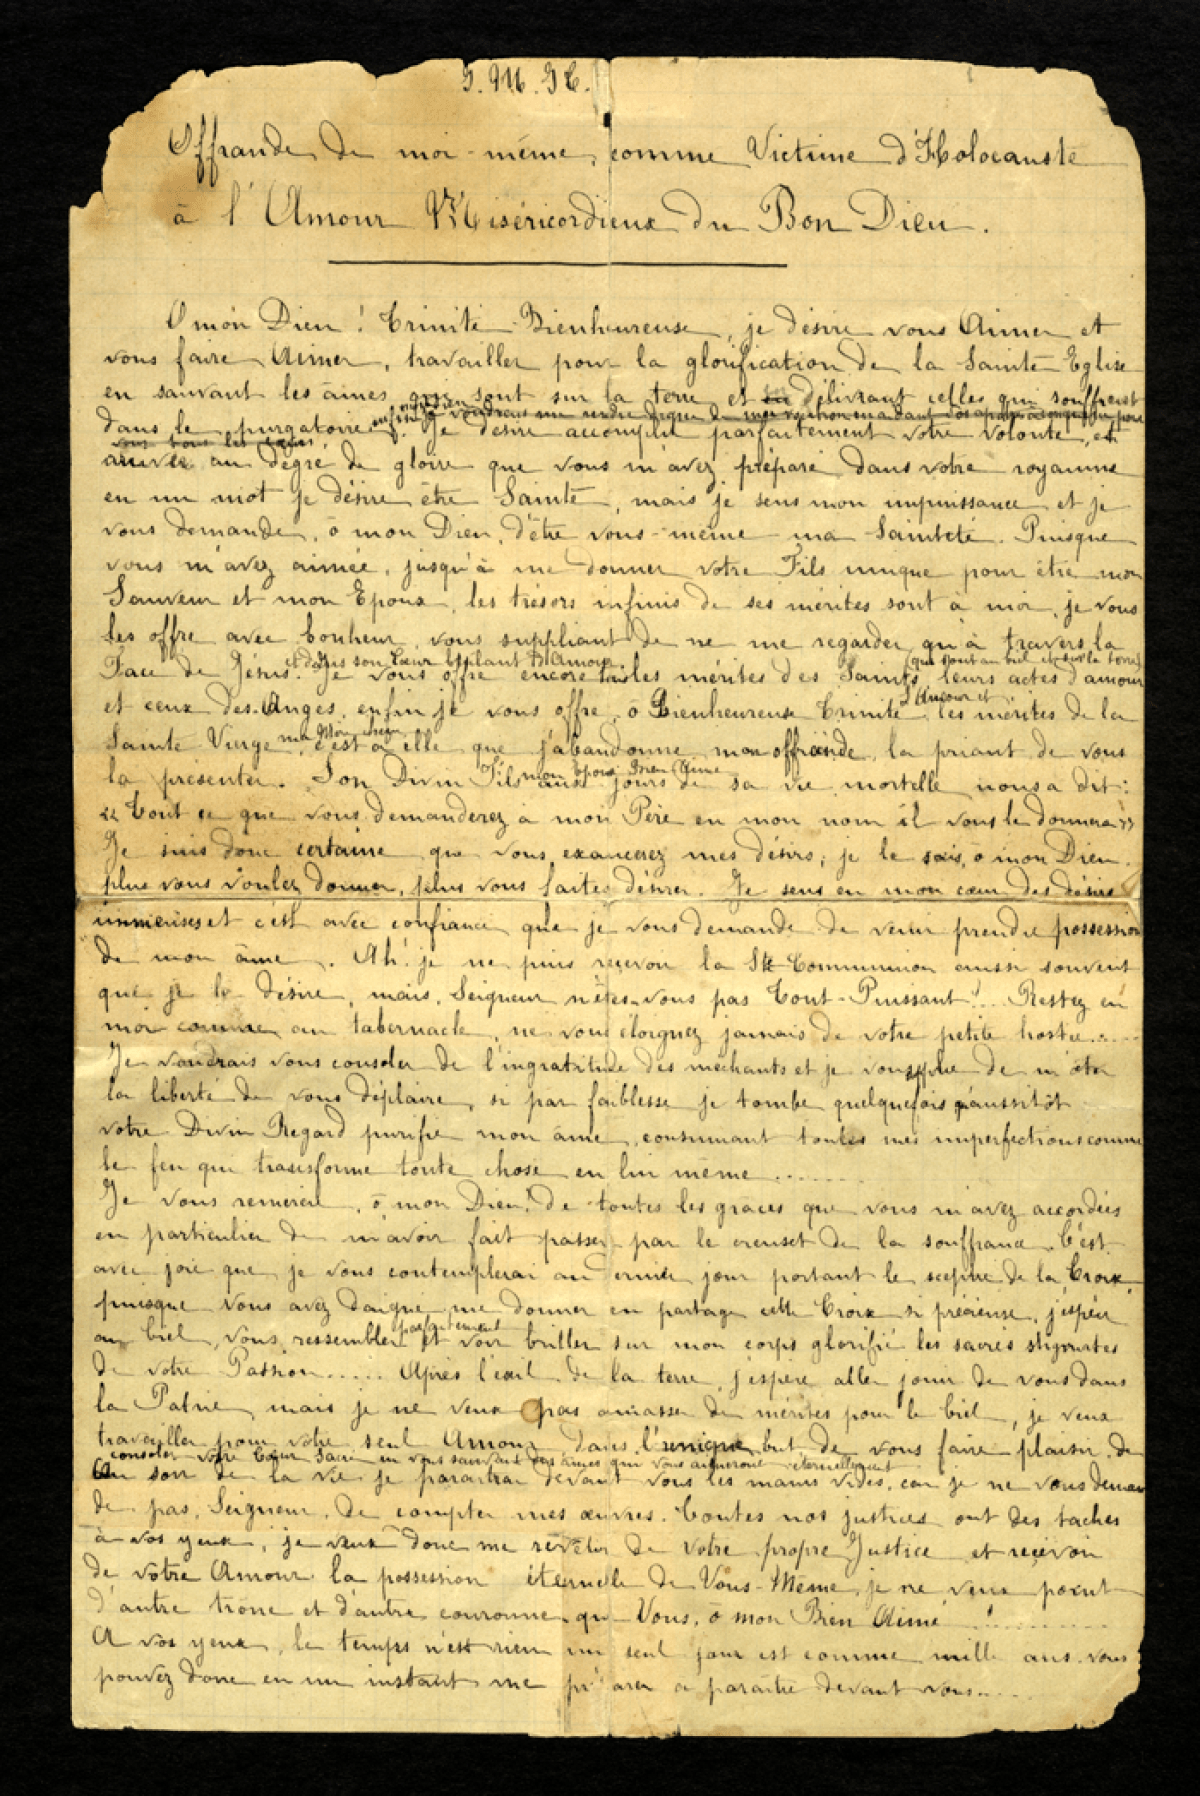 J. M. J. T.
Offrande de moi-même, comme Victime d'Holocauste
à l'Amour Miséricordieux du Bon Dieu.
O mon Dieu ! Trinité Bienheureuse, je désire vous Aimer et
vous faire Aimer, travailler pour la glorification de la Sainte Eglise
en sauvant les âmes qui sont sur la terre et en délivrant celles qui souffrent
dans le purgatoire. Je désire accomplir parfaitement votre volonté, et
arriver au dégré de gloire que vous m'avez préparé dans votre royaume
en un mot je désire être Sainte, mais je sens mon impuissance et je
vous demande, ô mon Dieu, d'être vous-même ma Sainteté. Puisque
vous m'avez aimée, jusqu'à me donner votre Fils unique pour être mon
Sauveur et mon Epoux, les trésors infinis de ses mérites sont à moi, je vous
les offre avec bonheur, vous suppliant de ne me regarder qu'à travers la
et dans son Coeur brûlant d'Amour (qui sont au Ciel et sur la terre)
Face de Jésus. Je vous offre encore tous les mérites des Saints, leurs actes d'amour
l'Amour et
et ceux des Anges, enfin je vous offre, ô Bienheureuse Trinité, les mérites de la
ma Mère chérie
Sainte Vierge, c'est à elle que j'abandonne mon offrande, la priant de vous
mon Epoux Bien-Aimé
la présenter. Son Divin Fils aux jours de sa vie mortelle nous a dit :
« Tout ce que vous demanderez à mon Père en mon nom il vous le donnera »
Je suis donc certaine que vous exaucerez mes désirs ; je le sais, ô mon Dieu,
plus vous voulez donner, plus vous faites désirer. Je sens en mon coeur des désirs
immenses et c'est avec confiance que je vous demande de venir prendre possession
de mon âme. Ah ! je ne puis reçevoir la Ste Communion aussi souvent
que je le désire, mais, Seigneur, n'êtes-vous pas Tout-Puissant ?.. Restez en
moi comme au tabernacle, ne vous éloignez jamais de votre petite hostie....
Je voudrais vous consoler de l'ingratitude des méchants et je vous supplie de m'ôter
la liberté de vous déplaire, si par faiblesse je tombe quelquefois qu'aussitôt
votre Divin Regard purifie mon âme, consumant toutes mes imperfections comme
le feu qui transforme toute chose en lui même.......
Je vous remercie, ô mon Dieu ! de toutes les grâces que vous m'avez accordées
en particulier de m'avoir fait passer par le creuset de la souffrance. C'est
avec joie que je vous contemplerai au dernier jour portant le sceptre de la Croix,
puisque vous avez daigné me donner en partage cette Croix si précieuse, j'espère
parfaitement
au Ciel, vous ressembler et voir briller sur mon corps glorifié les sacrés stigmates
de votre Passion..... Après l'exil de la terre, j'espère aller jouir de vous dans
la Patrie, mais je ne veux pas amasser de mérites pour le Ciel, je veux
travailler pour votre seul Amour, dans l'unique but de vous faire plaisir, de
consoler votre Coeur Sacré en vous sauvant des âmes qui vous aimeront éternellement
Au soir de la vie je paraîtrai devant vous les mains vides, car je ne vous deman
de pas, Seigneur, de compter mes oeuvres. Toutes nos justices ont des taches
à vos yeux, je veux donc me revêtir de votre propre Justice et reçevoir
de votre Amour la possession éternelle de Vous-Même, je ne veux point
d'autre trône et d'autre couronne que Vous, ô mon Bien Aimé !.........
A vos yeux, le temps n'est rien un seul jour est comme mille ans, vous
pouvez donc en un instant me préparer à paraître devant vous.....